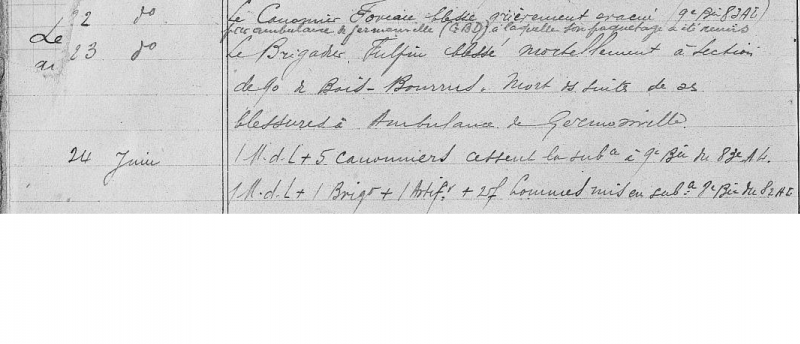 22 do Le Canonnier Foveau blessé grièrement evacué 9e Bie 83 AL
par ambulance de Germonville (GBD) à laquelle son paquetage a été remis
Le 23 do Le Brigadier Fulpin blessé mortellement à section
de 90 de Bois-Bourrus. Mort des suites de ses
blessures à Ambulance de Germonville
24 Juin 1 M.d.L + 5 canonniers cessent la suba à 9e Bie du 83e A L.
1 M.d.L + 1 Brigr + 1 Artifr + 25 hommes mis en suba 9e Bie du 82 AL